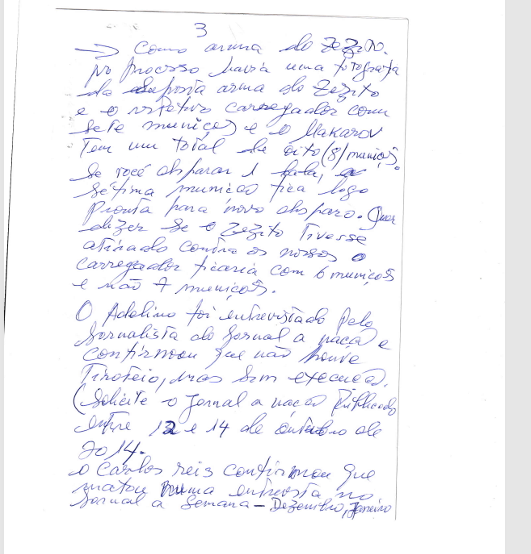 3
→ Como arma do Zezito.
No processo havia uma fotografia
da suposta arma do Zezito
e o respetivo carregador com
sete munições e o Makarov
Tem um total de oito (8) munições.
Se você disparar 1 bala, a
sétima munição fica logo
Pronta para novo disparo. Quer
dizer se o Zezito Tivesse
atirado contra os nossos o
carregador ficaria com 6 munições
e não 7 munições.
O Adelino foi entrevistado pelo
Jornalista do Jornal a nação e
confirmou que não houve
Tiroteio, mas sim execução.
(Solicite o Jornal a nação Publicado
entre 12 e 14 de outubro de
2014.
o Carlos reis confirmou que
matou numa entrevista no
Jornal a Semana – Dezembro, Janeiro